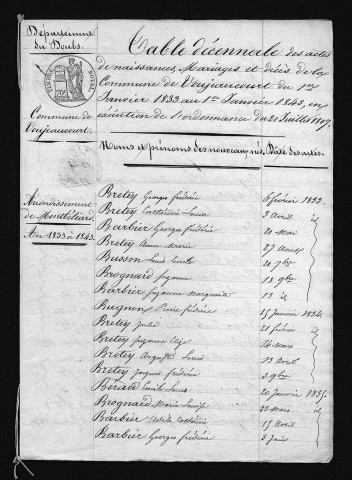 Département
du Doubs.
TIMBRE ROYAL
Commune de
Voujeaucourt.
Arrondissement
de Montbéliard
An 1833 à 1843.
Table décennale des actes
de naissances, Mariages et décès de la
Commune de Voujeaucourt du 1er
Janvier 1833 au 1er Janvier 1843, en
exécution de l'ordonnance du 20 Juillet 1807.
Noms et prénoms des nouveaux nés. Date des actes.
Bretey Georges frédéric 6 février 1833.
Bretey Catherine Louise 3 Avril id
Barbier Georges frédéric 21 Mai
Bretey Anne Marie 27 Août
Busson Louis Emile 20 9bre
Brognard Suzanne 18 9bre
Barbier Suzanne Marguerite 13 id
Bugnon Pierre frédéric 15 Janvier 1834
Bretey Julie 21 février id
Bretey Suzanne Elise 24 Mars
Bretey Auguste Louis 13 Avril
Bretey Jacques frédéric 2 9bre
Bérard Emile Louis 20 Janvier 1835.
Brognard Marie Louise 23 Mars id
Barbier Adèle Catherine 15 Avril
Barbier Georges frédéric 5 Juin